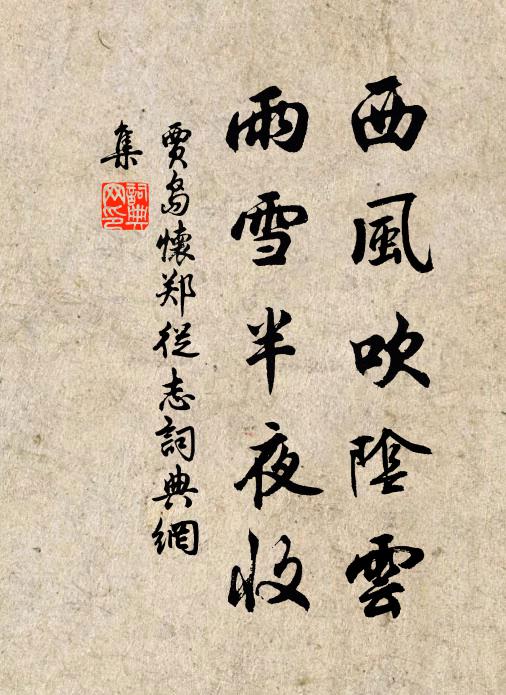 西風吹陰雲
雨雪半夜收
賈島懷郑從志詞典網
集
詞典
网印